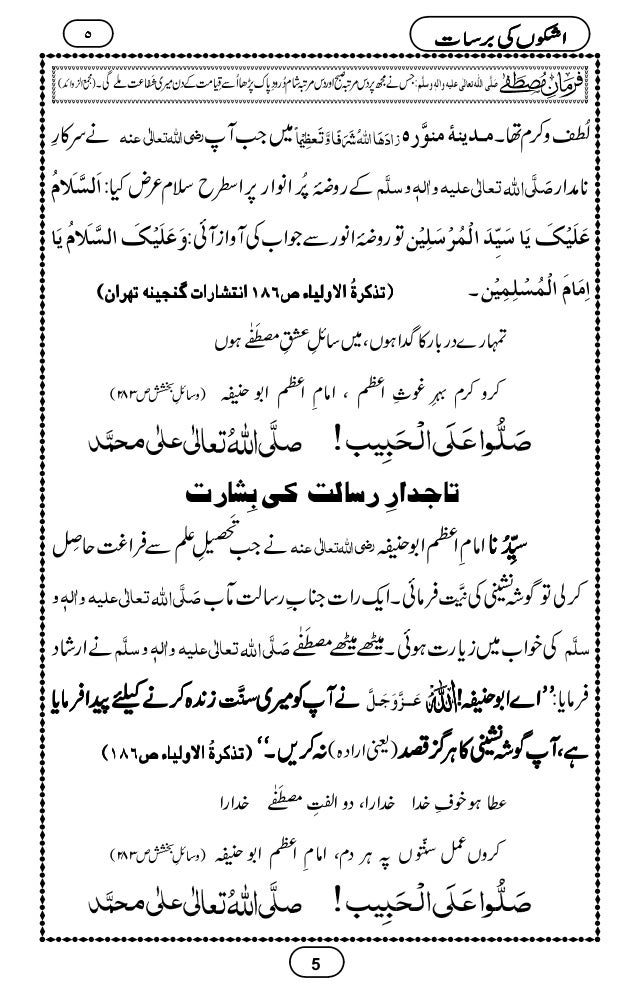 اشکوں کی برسات
۵
فرمانِ مصطفٰے صلَّی اللہ تعالٰی علیہ والہٖ وسلَّم: جس نے مجھ پر دس مرتبہ صبح اور دس مرتبہ شام دُرود پاک پڑھا اُسے قیامت کے دن میری شفاعت ملے گی۔ (مجمع الزوائد)
لُطف و کرم تھا۔ مدینۂ منوَّرہ زَادَھَا اللہُ شَرَفًا وَّتَعظِیْماً میں جب آپ رضی اللہ تعالٰی عنہ نے سرکارِ
نامدار صَلَّی اللہ تعالٰی علیہ والہٖ وسلَّم کے روضۂ پُر انوار پر اسطرح سلام عرض کیا: اَلسَّلَامُ
عَلَیْکَ یَا سَیِّدَ الْمُرْسَلِیْن تو روضۂ انور سے جواب کی آواز آئی: وَعَلَیْکَ السَّلَامُ یَا
اِمَامَ الْمُسْلِمِیْن۔ (تذکرۃُ الاولیاء ص۱۸۶ انتشارات گنجینہ تھران)
تمہارے دربار کا گدا ہوں، میں سائلِ عشقِ مصطَفٰے ہوں
کرو کرم بہرِ غوثِ اعظم ، امامِ اعظم ابو حنیفہ (وسائلِ بخشش ص۲۸۳)
صَلُّوا عَلَی الْحَبِیب! صلَّی اللہُ تعالٰی علٰی محمَّد
تاجدارِ رسالت کی بِشارت
سیِّدُنا امامِ اعظم ابو حنیفہ رضی اللہ تعالٰی عنہ نے جب تَحصیلِ علم سے فراغت حاصِل
کر لی تو گوشہ نشینی کی نیَّت فرمائی۔ ایک رات جنابِ رسالت مآب صَلَّی اللہ تعالٰی علیہ والہٖ و
سلَّم کی خواب میں زیارت ہوئی۔ میٹھے میٹھے مصطَفٰے صَلَّی اللہ تعالٰی علیہ والہٖ وسلَّم نے ارشاد
فرمایا: ”اے ابو حنیفہ! اللہ عَزَّوَجَلَّ نے آپ کو میری سنَّت زندہ کرنے کیلئے پیدا فرمایا
ہے، آپ گوشہ نشینی کا ہرگز قصد (یعنی ارادہ) نہ کریں۔“ (تذکرۃُ الاولیاء ص۱۸۶)
عطا ہو خوفِ خدا خدارا، دو الفتِ مصطَفٰے خدارا
کروں عمل سنّتوں پہ ہر دم، امامِ اعظم ابو حنیفہ (وسائلِ بخشش ص۲۸۳)
صَلُّوا عَلَی الْحَبِیب! صلَّی اللہُ تعالٰی علٰی محمَّد
5